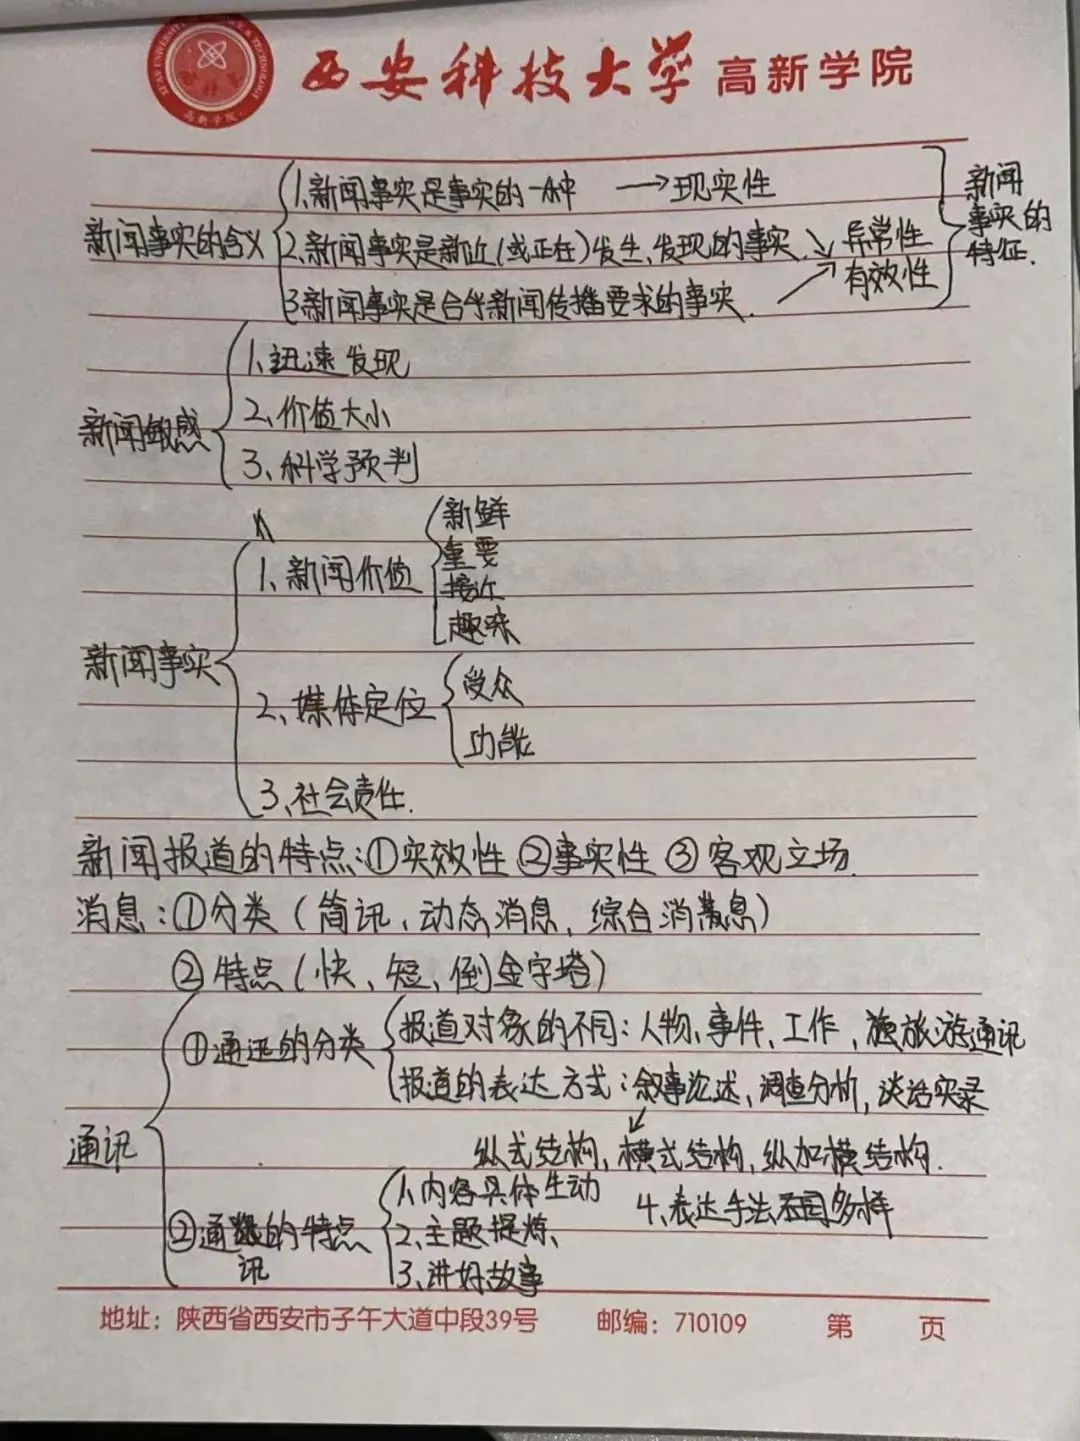 西安科技大学 高新学院
新闻事实的含义
1.新闻事实是事实的一种 → 现实性
2.新闻事实是新近(或正在)发生、发现的事实. ↘ 异常性
3.新闻事实是合乎新闻传播要求的事实. ↗ 有效性
新闻事实的特征.
新闻敏感
1.迅速发现
2、价值大小
3、科学预判
新闻事实
1、新闻价值
新鲜
重要
接近
趣味
2、媒体定位
受众
功能
3、社会责任.
新闻报道的特点:①实效性 ②事实性 ③客观立场.
消息:①分类(简讯、动态消息,综合消息)
②特点(快、短、倒金字塔)
通讯
①通讯的分类
报道对象的不同:人物、事件、工作、旅游通讯
报道的表达方式:叙事论述、调查分析,谈话实录
纵式结构,横式结构,纵加横结构.
②通讯的特点
1、内容具体生动
2、主题提炼、
3、讲好故事
4、表达手法不同多样
地址:陕西省西安市子午大道中段39号 邮编:710109 第 页